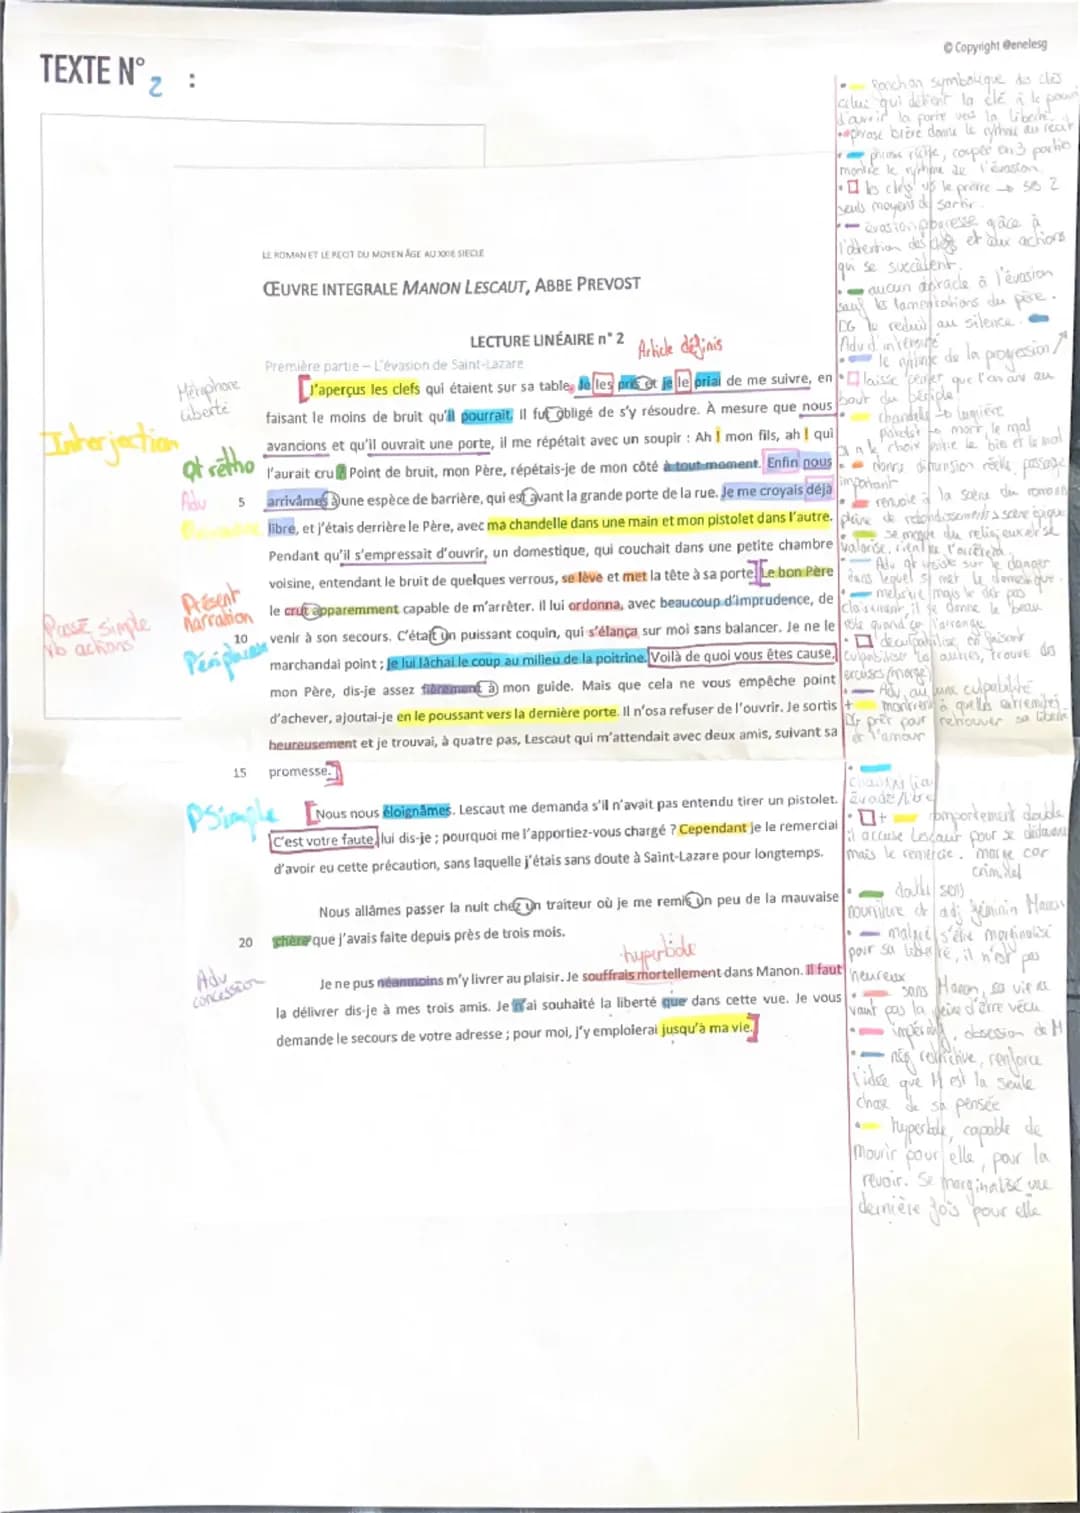 © Copyright @enelesg
TEXTE N° 2 :
LE ROMAN ET LE RECIT DU MOYEN ÂGE AU XXIE SIECLE
ŒUVRE INTEGRALE MANON LESCAUT, ABBE PREVOST
LECTURE LINÉAIRE n° 2
Article définis
Première partie – L'évasion de Saint-Lazare
J'aperçus les clefs qui étaient sur sa table. Je les pris et je le priai de me suivre, en
faisant le moins de bruit qu'il pourrait. Il fut obligé de s'y résoudre. À mesure que nous
avancions et qu'il ouvrait une porte, il me répétait avec un soupir : Ah ! mon fils, ah ! qui
l'aurait cru ? Point de bruit, mon Père, répétais-je de mon côté à tout moment. Enfin nous
5 arrivâmes à une espèce de barrière, qui est avant la grande porte de la rue. Je me croyais déjà
libre, et j'étais derrière le Père, avec ma chandelle dans une main et mon pistolet dans l'autre.
Pendant qu'il s'empressait d'ouvrir, un domestique, qui couchait dans une petite chambre
voisine, entendant le bruit de quelques verrous, se lève et met la tête à sa porte. Le bon Père
le crut apparemment capable de m'arrêter. Il lui ordonna, avec beaucoup d'imprudence, de
10 venir à son secours. C'était un puissant coquin, qui s'élança sur moi sans balancer. Je ne le
marchandai point ; je lui lâchai le coup au milieu de la poitrine. Voilà de quoi vous êtes cause,
mon Père, dis-je assez fièrement à mon guide. Mais que cela ne vous empêche point
d'achever, ajoutai-je en le poussant vers la dernière porte. Il n'osa refuser de l'ouvrir. Je sortis
heureusement et je trouvai, à quatre pas, Lescaut qui m'attendait avec deux amis, suivant sa
15 promesse.
Nous nous éloignâmes. Lescaut me demanda s'il n'avait pas entendu tirer un pistolet.
C'est votre faute, lui dis-je ; pourquoi me l'apportiez-vous chargé ? Cependant je le remerciai
d'avoir eu cette précaution, sans laquelle j'étais sans doute à Saint-Lazare pour longtemps.
Nous allâmes passer la nuit chez un traiteur où je me remis un peu de la mauvaise
20 chère que j'avais faite depuis près de trois mois.
hyperbole
Je ne pus néanmoins m'y livrer au plaisir. Je souffrais mortellement dans Manon. Il faut
la délivrer dis-je à mes trois amis. Je n'ai souhaité la liberté que dans cette vue. Je vous
demande le secours de votre adresse ; pour moi, j'y emploierai jusqu'à ma vie.
Métaphore
liberté
Interjection
qt rétho
Adv
Présent
narration
Passé simple
vb actions
Périphrase
PSimple
Adv
concession
symbolique des clés
celui qui détient la clé a le pouvoir
d'ouvrir la porte vers la liberté.
phrase brève donne le rythme au récit
coupée en 3 parties
montre le rythme de l'évasion
les clés vs le prêtre → ses 2
seuls moyens de sortir.
l'obtention des clefs et aux actions
qui se succèdent.
aucun obstacle à l'évasion
sauf les lamentations du père.
DG le réduit au silence.
Adv d'intensité
le rythme de la progression
laisse penser que l'on arrive au
bout du périple
chandelle → lumière
pistolet → mort, le mal
choix entre le bien et le mal
passage
important
renvoie à la scène du roman
se moque du religieux
valorise, rien ne l'arrêtera
Adv qt insiste sur le danger
dans lequel se met le domestique.
clairement, il se donne le beau
rôle quand ça l'arrange
déculpabilise, en faisant
culpabiliser les autres, trouve des
excuses
Adv, aucune culpabilité
montrent à quelles extrémités
DG prêt pour retrouver sa liberté
et l'amour
évadé/libre
comportement double
il accuse Lescaut pour se dédouaner
mais le remercie. morge car
criminel
double sens
nourriture et adj féminin Manon
malgré s'être marginalisé
pour sa liberté, il n'est pas
heureux
sans Manon, sa vie ne
vaut pas la peine d'être vécu
obsession de M
nég restrictive, renforce
l'idée que M est la seule
chose de sa pensée
hyperbole, capable de
mourir pour elle, pour la
revoir. Se marginalise une
dernière fois pour elle